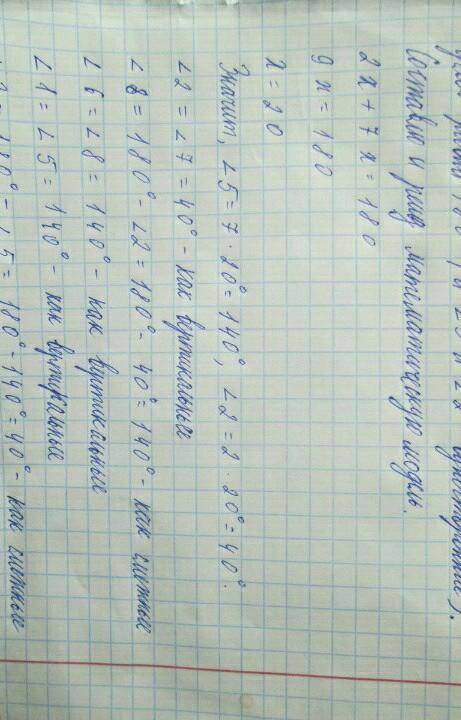 равно 180°, а ∠5 и ∠2 внутренние).
Составлю и решу математическую модель.
2x + 7x = 180
9x = 180
x = 20
Значит, ∠5 = 7 · 20° = 140°, ∠2 = 2 · 20° = 40°.
∠2 = ∠7 = 40° - как вертикальные
∠8 = 180° - ∠2 = 180° - 40° = 140° - как смежные
∠6 = ∠8 = 140° - как вертикальные
∠1 = ∠5 = 140° - как вертикальные
180° - ∠5 = 180° - 140° = 40° - как смежные